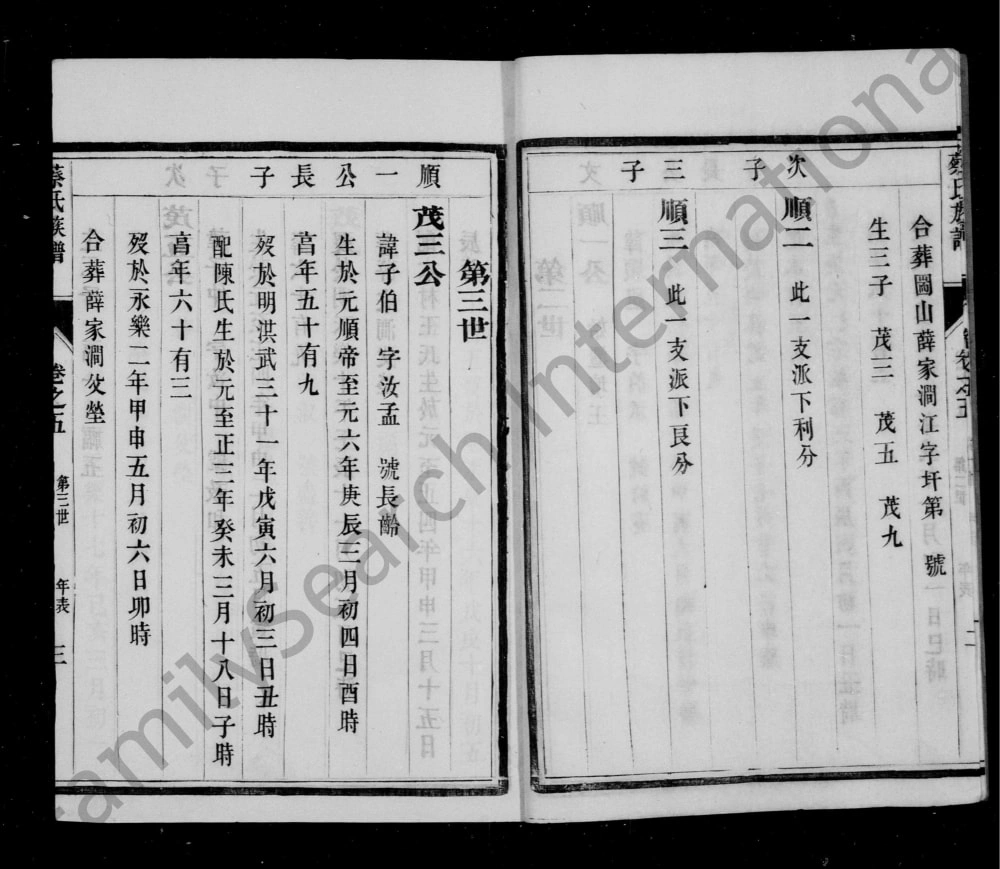 蔡氏族譜
卷之五
第二世
年表
二
合葬圌山薛家澗江字圩第 號
生三子 茂三 茂五 茂九
次子
順二 此一支派下利分
三子
順三 此一支派下艮分
第三世
順一公長子
茂三公
諱子伯 字汝孟 號長齡
生於元順帝至元六年庚辰二月初四日酉時
亯年五十有九
歿於明洪武三十一年戊寅六月初三日丑時
配陳氏生於元至正三年癸未三月十八日子時
亯年六十有三
歿於永樂二年甲申五月初六日卯時
合葬薛家澗父塋
蔡氏族譜
卷之五
第三世
年表
三
FamilySearch International